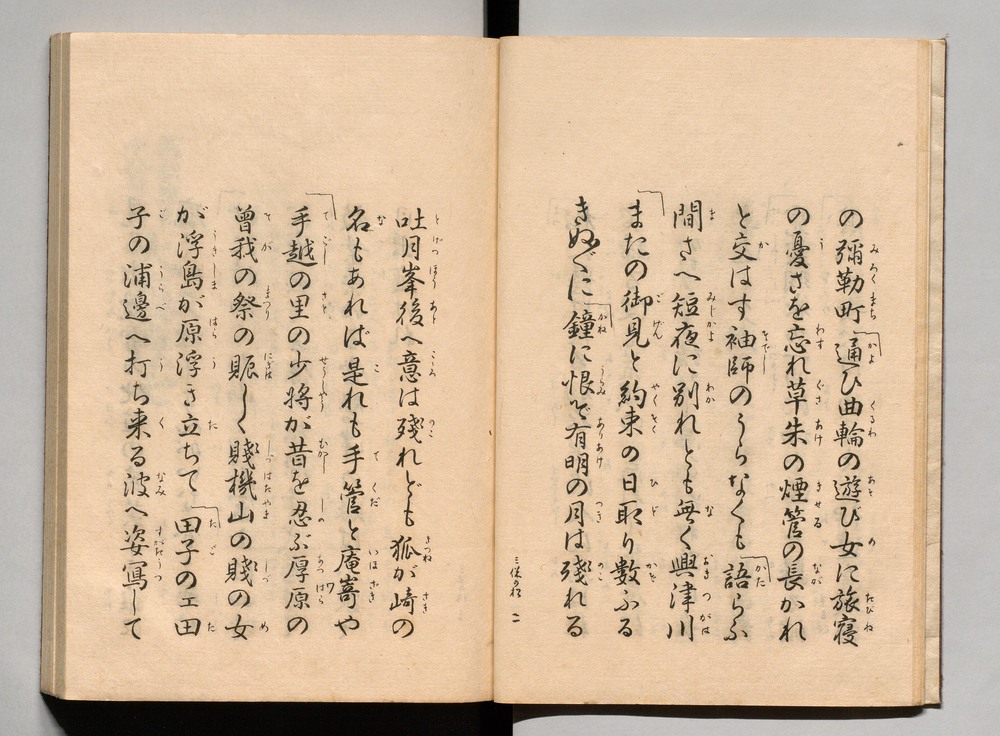 の彌勒町通ひ曲輪の遊び女に旅寝
の憂さを忘れ草朱の煙管の長かれ
と交はす袖師のうらなくも語らふ
間さへ短夜に別れとも無く興津川
またの御見と約束の日取り數ふる
きぬ〴〵に鐘に恨で有明の月は殘れる
二
吐月峯後へ意は殘れども狐が崎の
名もあれば是れも手管と庵嵜や
手越の里の少将が昔を忍ぶ厚原の
曾我の祭の賑しく賤機山の賤の女
が浮島が原浮き立ちて田子のエ田
子の浦邊へ打ち来る波へ姿寫して